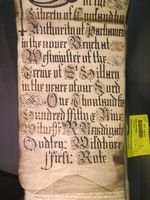 of the
Liberty of
Authority of Parliament
in the upper Bench at
Westminster of the
Terme of St Hillary
in the yeare of our Lord
One Thousand six
Hundred fiftie & Nine
Witness R Newdigate
first Role